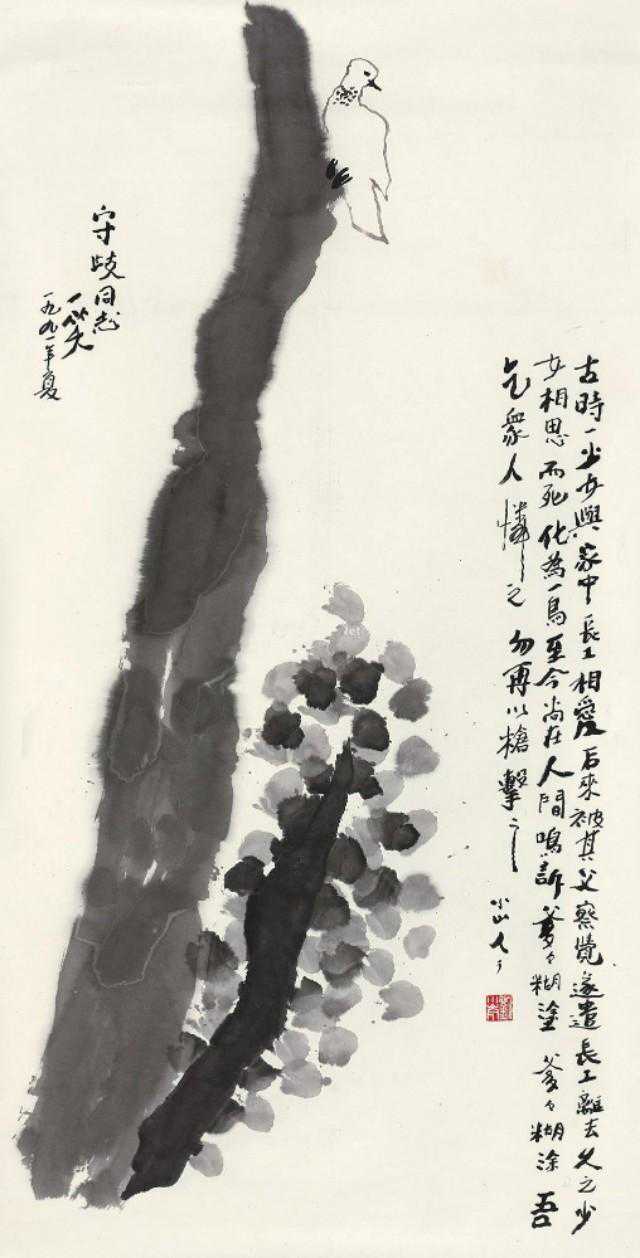 古時一少女與家中長工相愛后來被其父察覺遂遣長工離去久之少
女相思而死化為一鳥至今尚在人間鳴訴爹々糊塗爹々糊涂吾
乞眾人憐之勿再以槍擊之
小山人
守歧同志
一笑
一九九一年夏